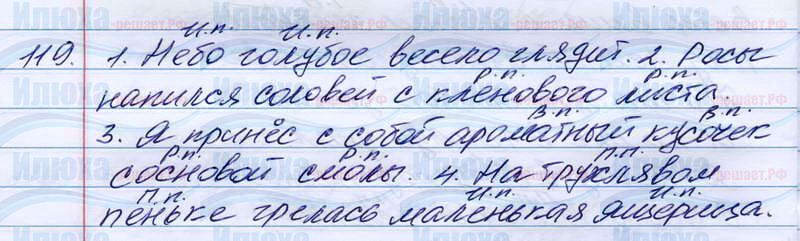 И.п. И.п.
119. 1. Небо голубое весело глядит. 2. Росы
Р.п. Р.п.
напился соловей с кленового листа.
В.п. В.п.
3. Я принёс с собой ароматный кусочек
Р.п. Р.п. П.п.
сосновой смолы. 4. На трухлявом
П.п. И.п. И.п.
пеньке грелась маленькая ящерица.